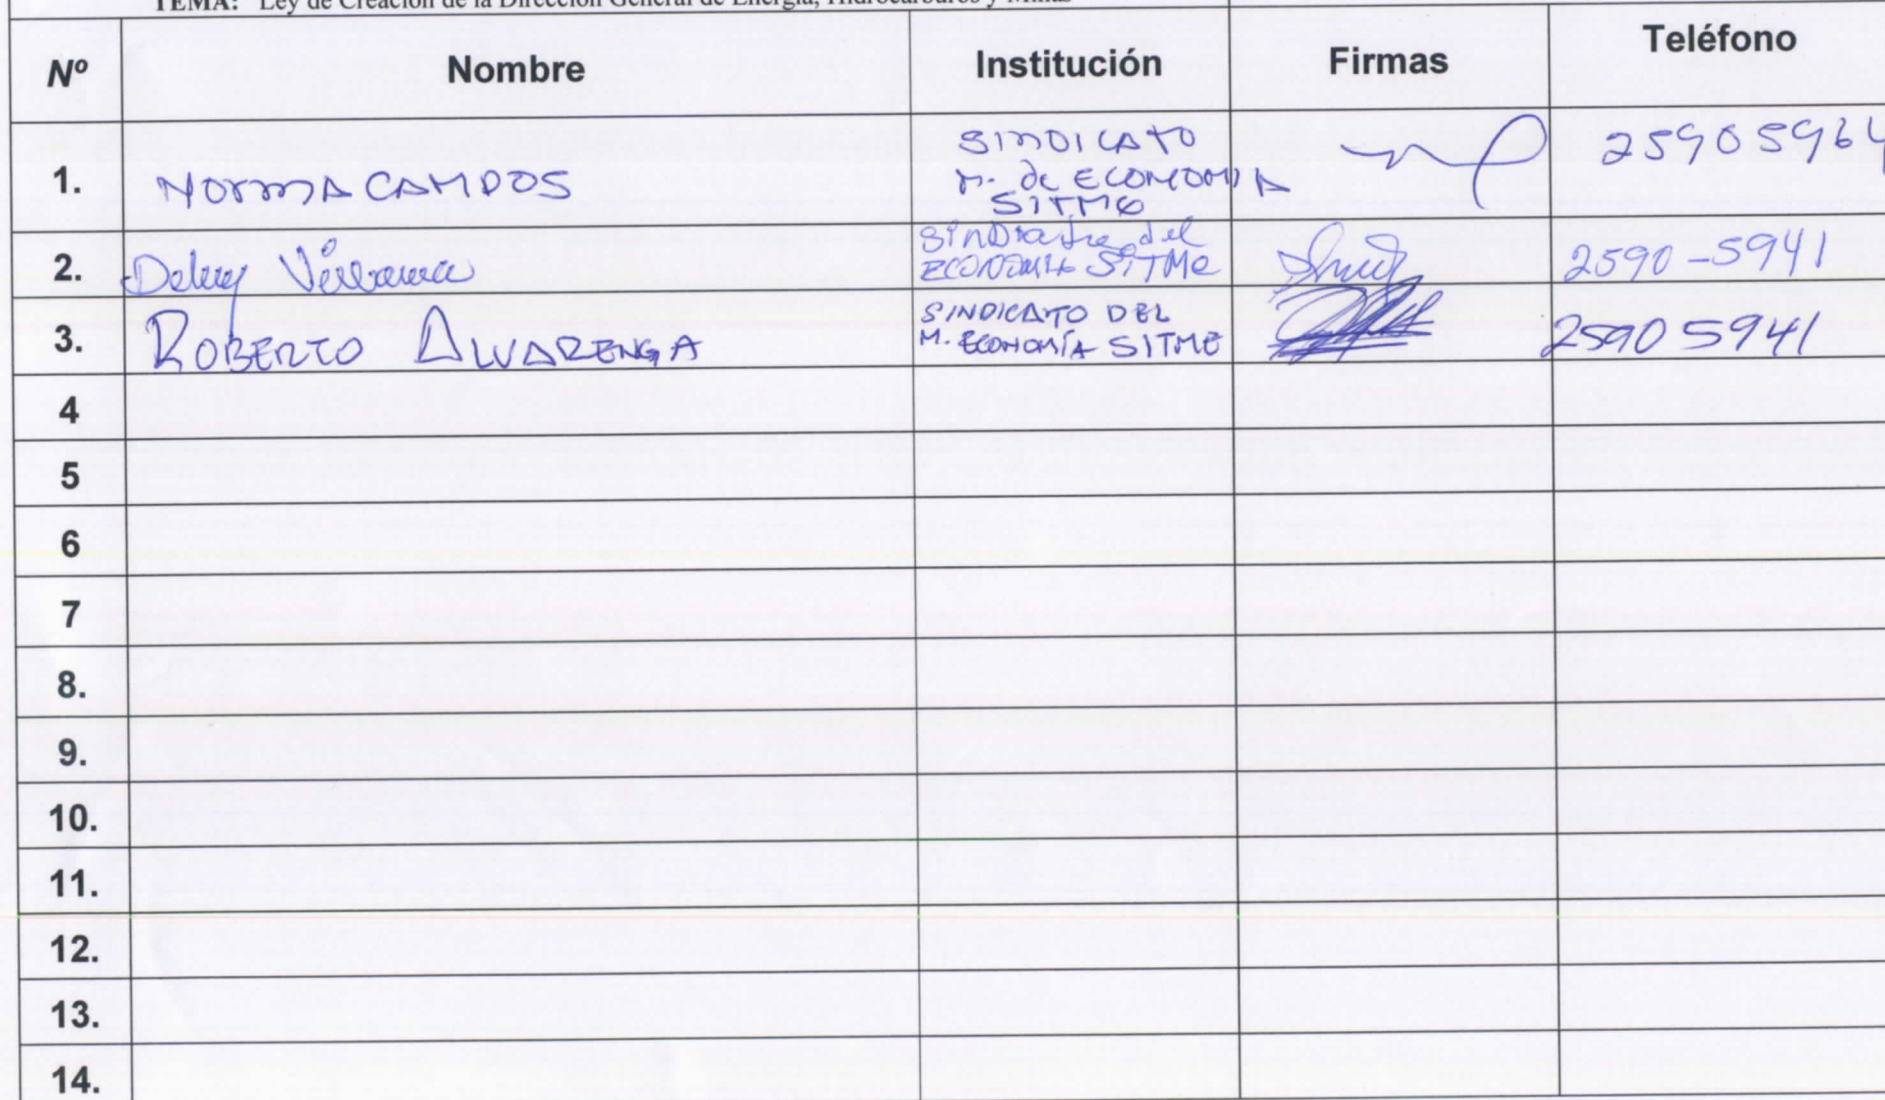 TEMA: Ley de Creación de la Dirección General de Energía, Hidrocarburos y Minas
Nº Nombre Institución Firmas Teléfono
1. NORMA CAMPOS SINDICATO M. de ECONOMIA SITME 25905964
2. SINDICATO del ECONOMIA SITME 2590-5941
3. ROBERTO ALVARENGA SINDICATO DEL M. ECONOMÍA SITME 25905941
4
5
6
7
8.
9.
10.
11.
12.
13.
14.